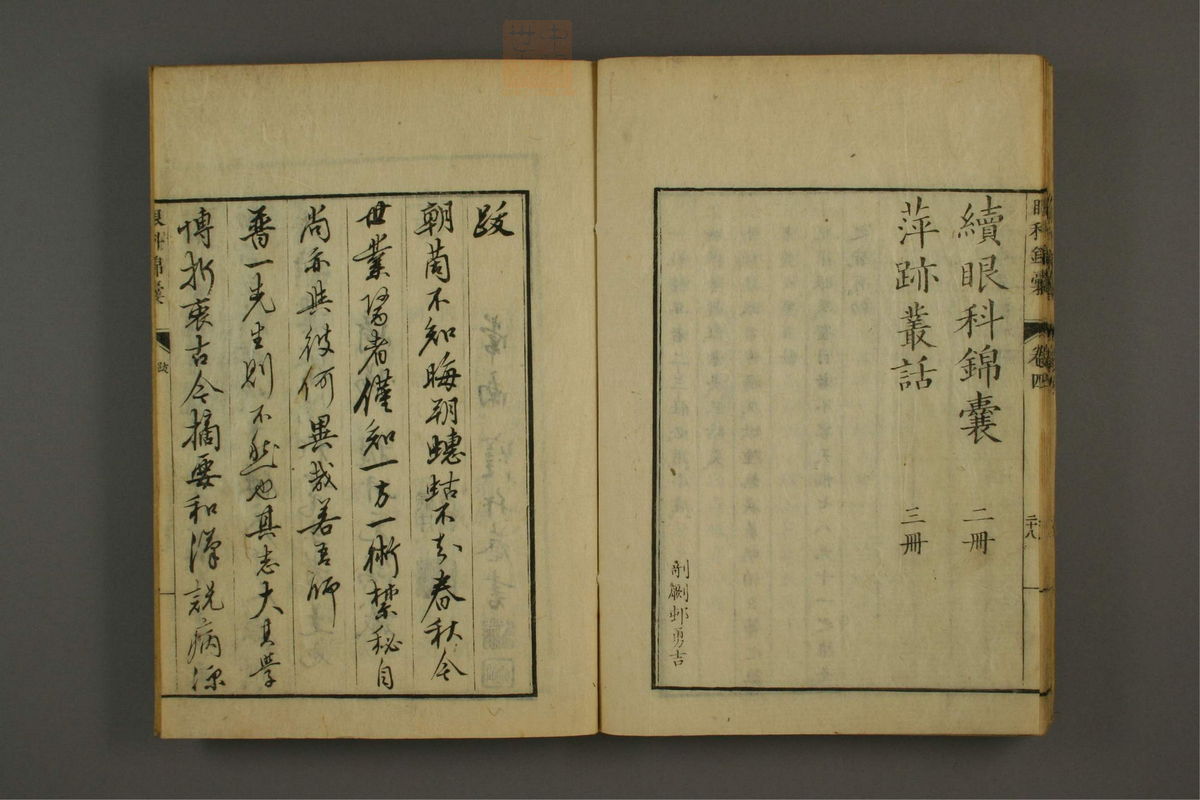 眼科錦囊 卷四 二十八
續眼科錦囊 二冊
萍跡叢話 三冊
剞劂邨勇吉
跋
朝菌不知晦朔蟪蛄不知春秋今
世業醫者僅知一方一術禁秘自
尚亦與彼何異哉若吾師
普一先生則不然也其志大其學
博折衷古今摘要和漢説病源
眼科錦囊 跋